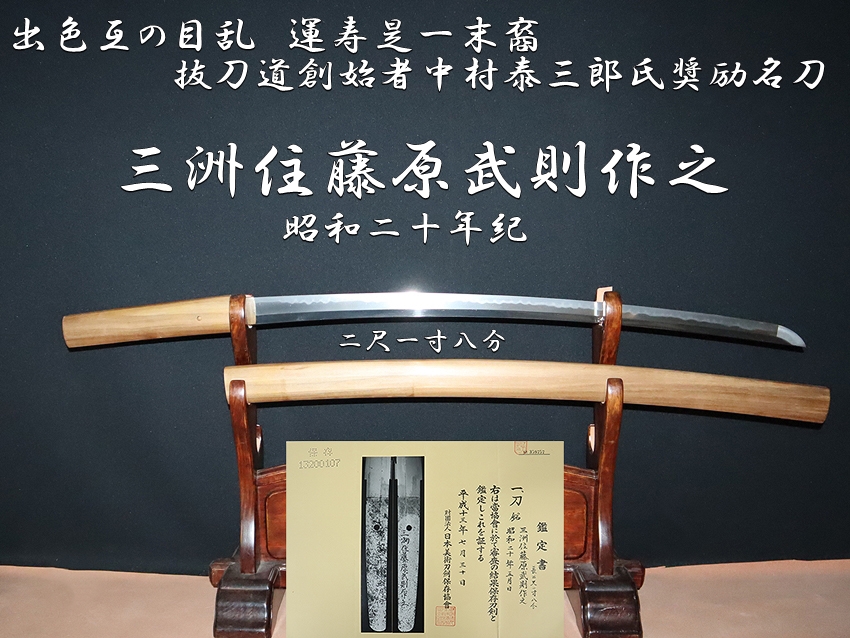 出色互の目乱 運寿是一末裔
抜刀道創始者中村泰三郎氏奨励名刀
三洲住藤原武則作之
昭和二十年紀
二尺一寸八分
保存
13200107
鑑定書
一、刀 銘 三洲住藤原武則作之
昭和二十年五月日
長さ二尺一寸八分
右は當協會に於て審査の結果保存刀剣と
鑑定しこれを証する
平成十三年七月三十日
財團法人 日本美術刀剣保存協會
三洲住藤原武則作之